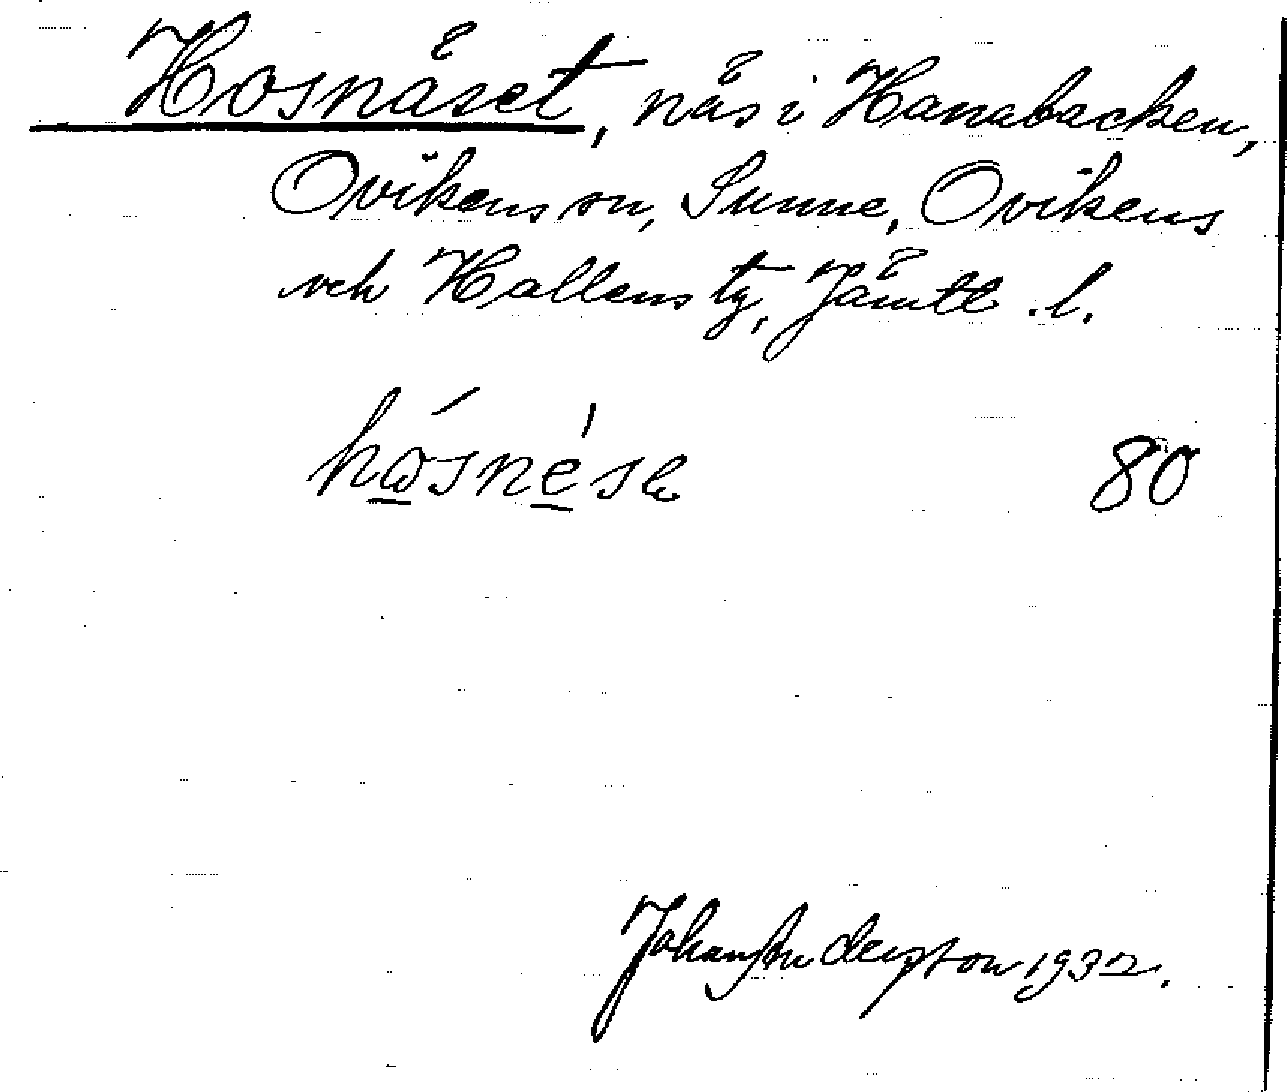 Hosnäset, näs i Hanabacken,
Ovikens sn, Sunne, Ovikens
och Hallens tg, Jämtl. l.
hósnésh 80
Johan Anderston 1932.